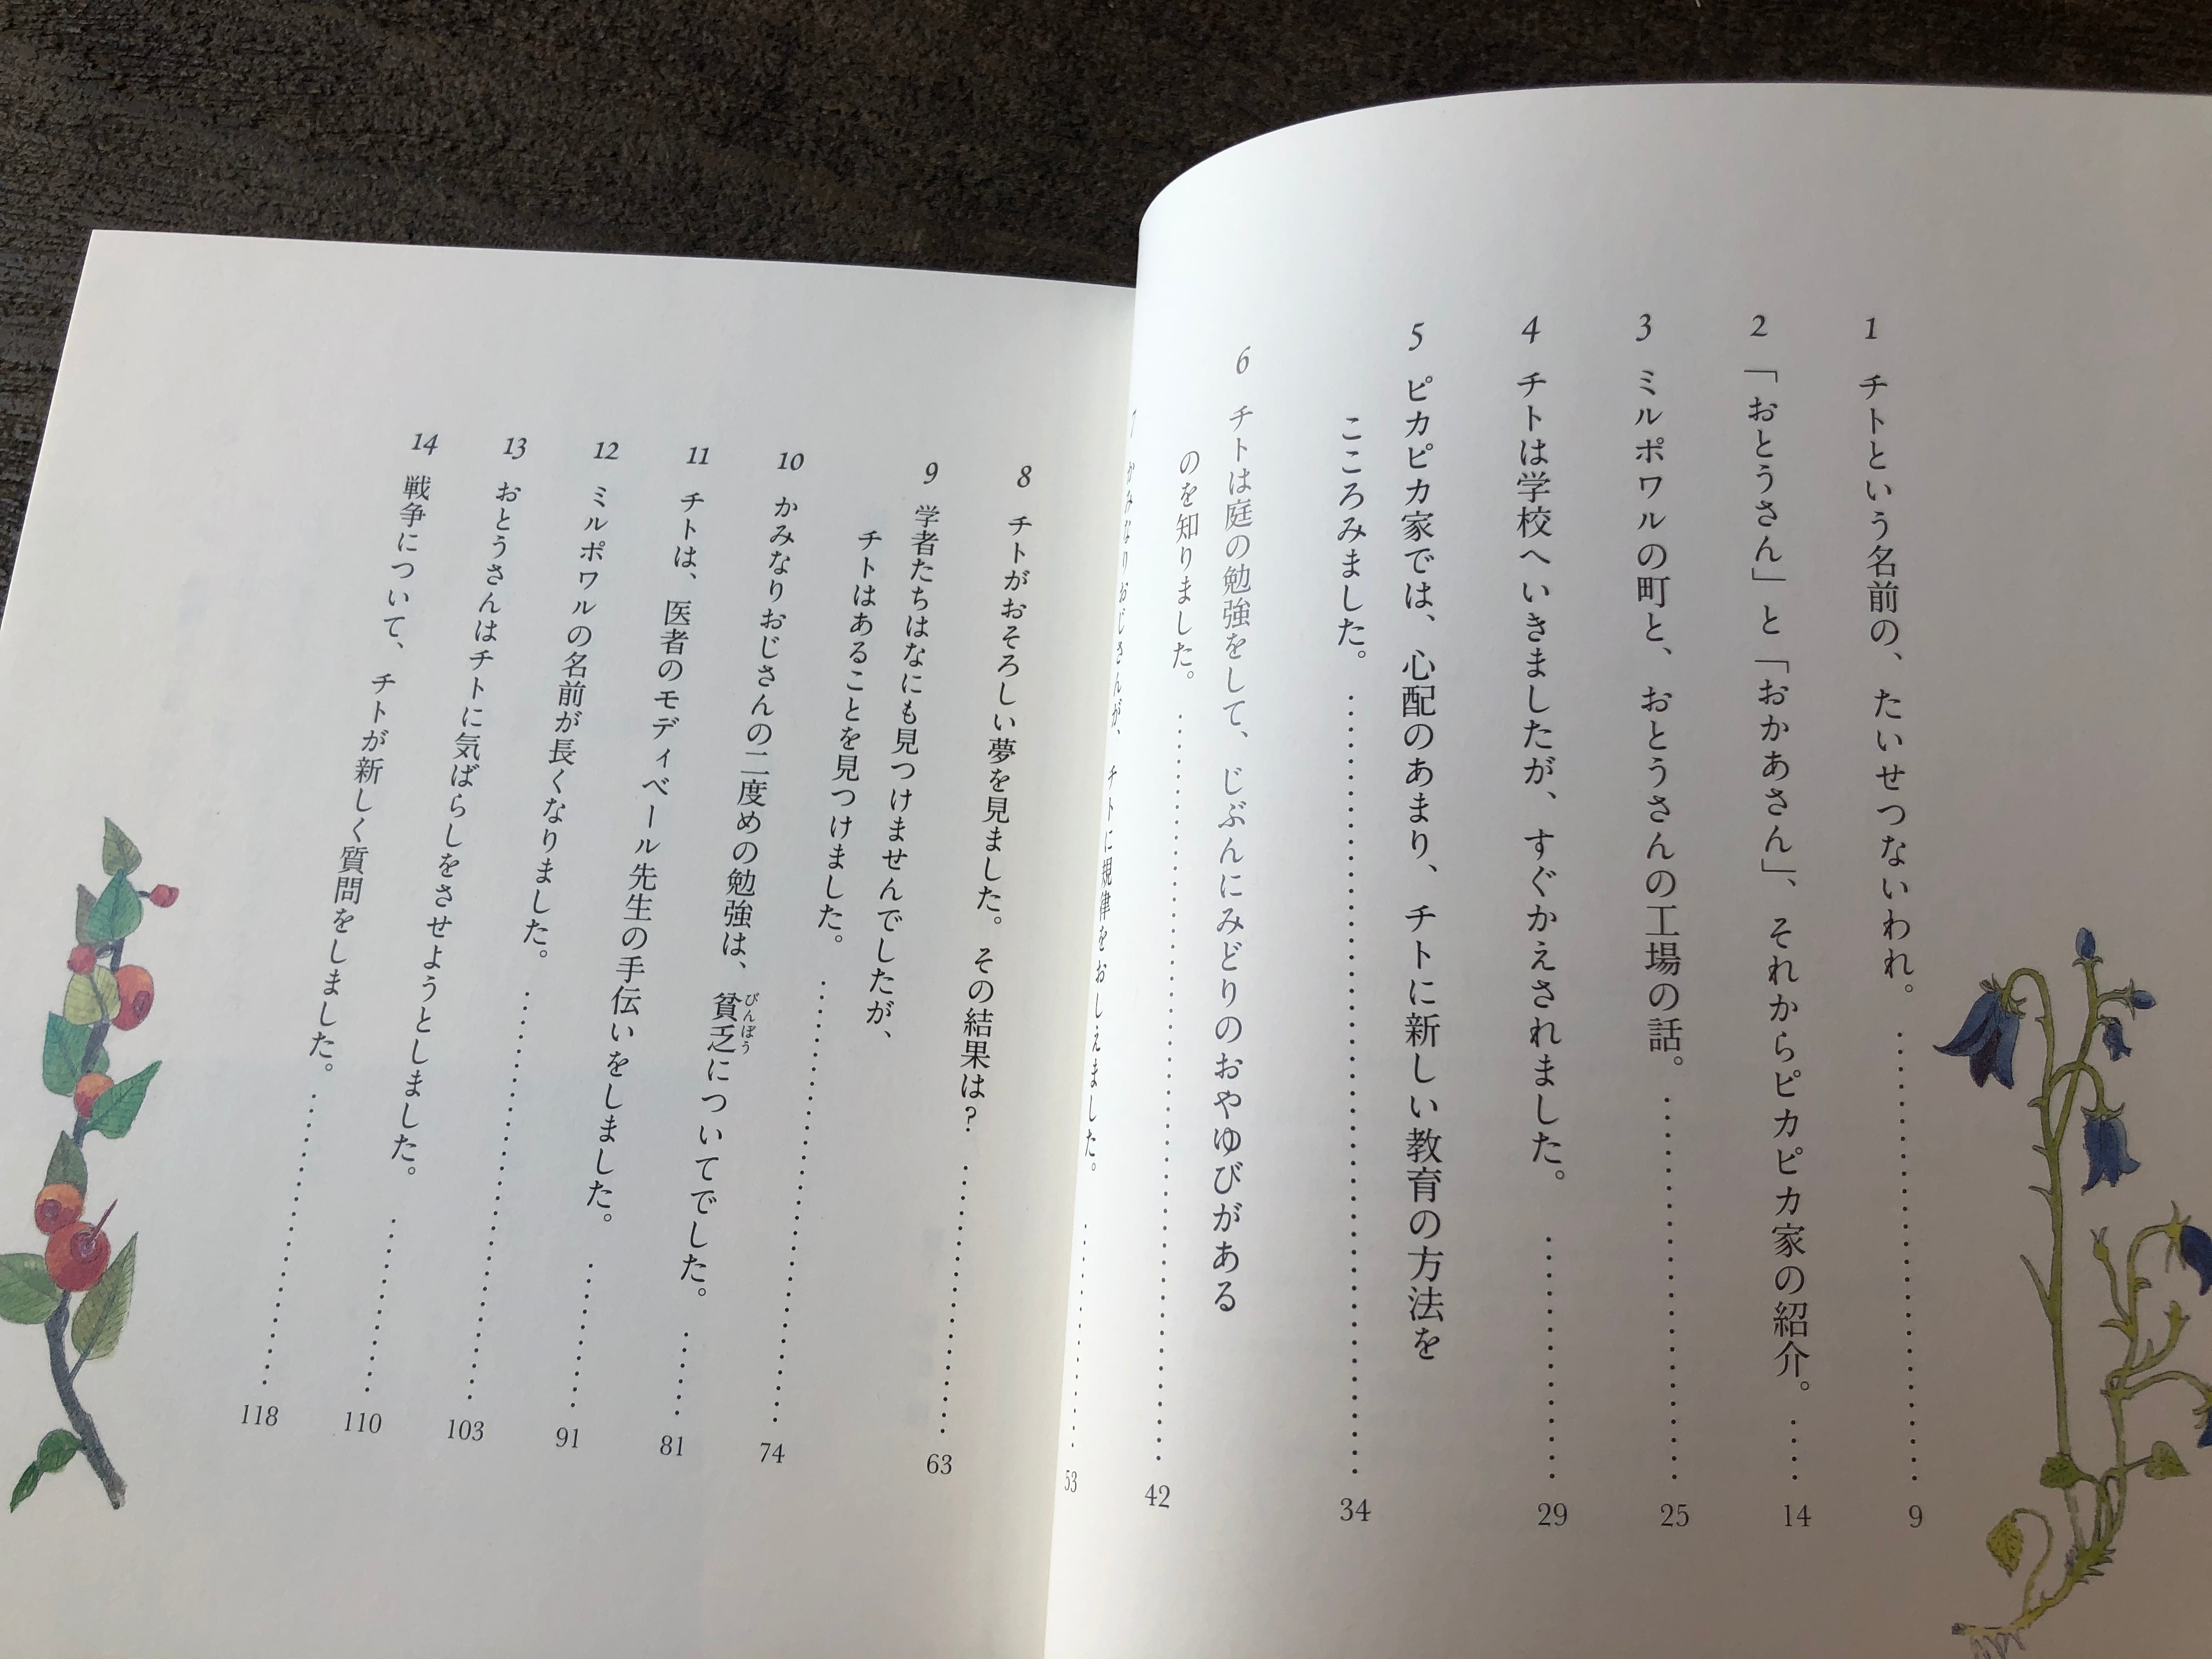 1 チトという名前の、たいせつないわれ。 ………… 9
2 「おとうさん」と「おかあさん」、それからピカピカ家の紹介。 ………… 14
3 ミルポワルの町と、おとうさんの工場の話。 ………… 25
4 チトは学校へいきましたが、すぐかえされました。 ………… 29
5 ピカピカ家では、心配のあまり、チトに新しい教育の方法を
こころみました。 ………… 34
6 チトは庭の勉強をして、じぶんにみどりのおやゆびがある
のを知りました。 ………… 42
7 かみなりおじさんが、チトに規律をおしえました。 ………… 53
8 チトがおそろしい夢を見ました。その結果は? ………… 63
9 学者たちはなにも見つけませんでしたが、
チトはあることを見つけました。 ………… 74
10 かみなりおじさんの二度めの勉強は、貧乏(びんぼう)についてでした。 ………… 81
11 チトは、医者のモディベール先生の手伝いをしました。 ………… 91
12 ミルポワルの名前が長くなりました。 ………… 103
13 おとうさんはチトに気ばらしをさせようとしました。 ………… 110
14 戦争について、チトが新しく質問をしました。 ………… 118